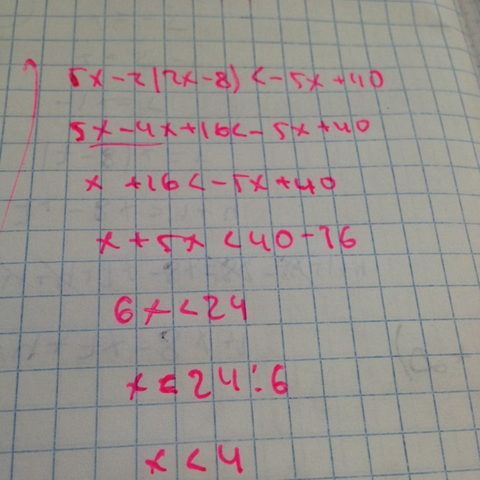 5x-2(2x-8)<-5x+40
5x-4x+16<-5x+40
x +16<-5x+40
x+5x<40-16
6x<24
x<24:6
x<4